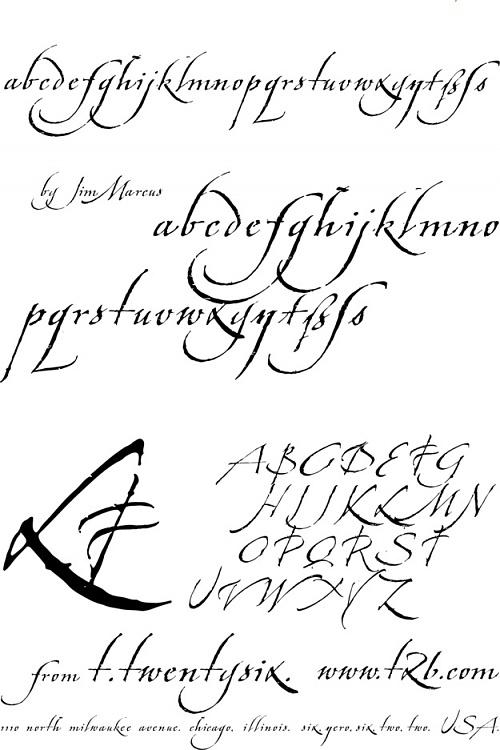 abcdefghijklmnopqrstuvwxyztßſs
by Jim Marcus
abcdefghijklmno
pqrstuvwxyztßſs
ABCDEFG
HIJKLMN
OPQRST
UVWXYZ
from t.twentysix. www.t26.com
1110 north milwaukee avenue. chicago. illinois. six.zero.six.two.two. USA.